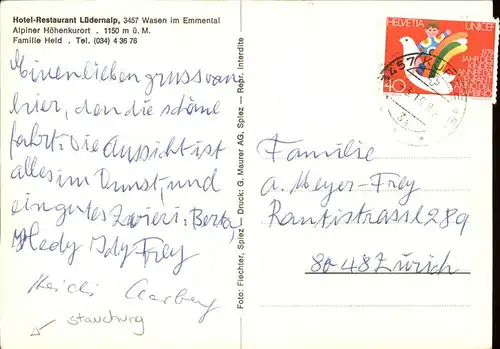 Hotel-Restaurant Lüdernalp, 3457 Wasen im Emmental
Alpiner Höhenkurort . 1150 m ü. M.
Familie Held . Tel. (034) 4 36 76
Einen lieben gruss von
hier, den die schöne
fahrt. Die Aussicht ist
alles im Dunst, und
ein gutes Zvieri. Berta,
Hedy Idy Frey
Heidi
Foto: Flechter, Spiez – Druck: G. Maurer AG, Spiez – Repr. interdite
HELVETIA
UNICEF
40
3457
Familie
A. Meyer-Frey
Rautistrasse 289
8048 Zürich